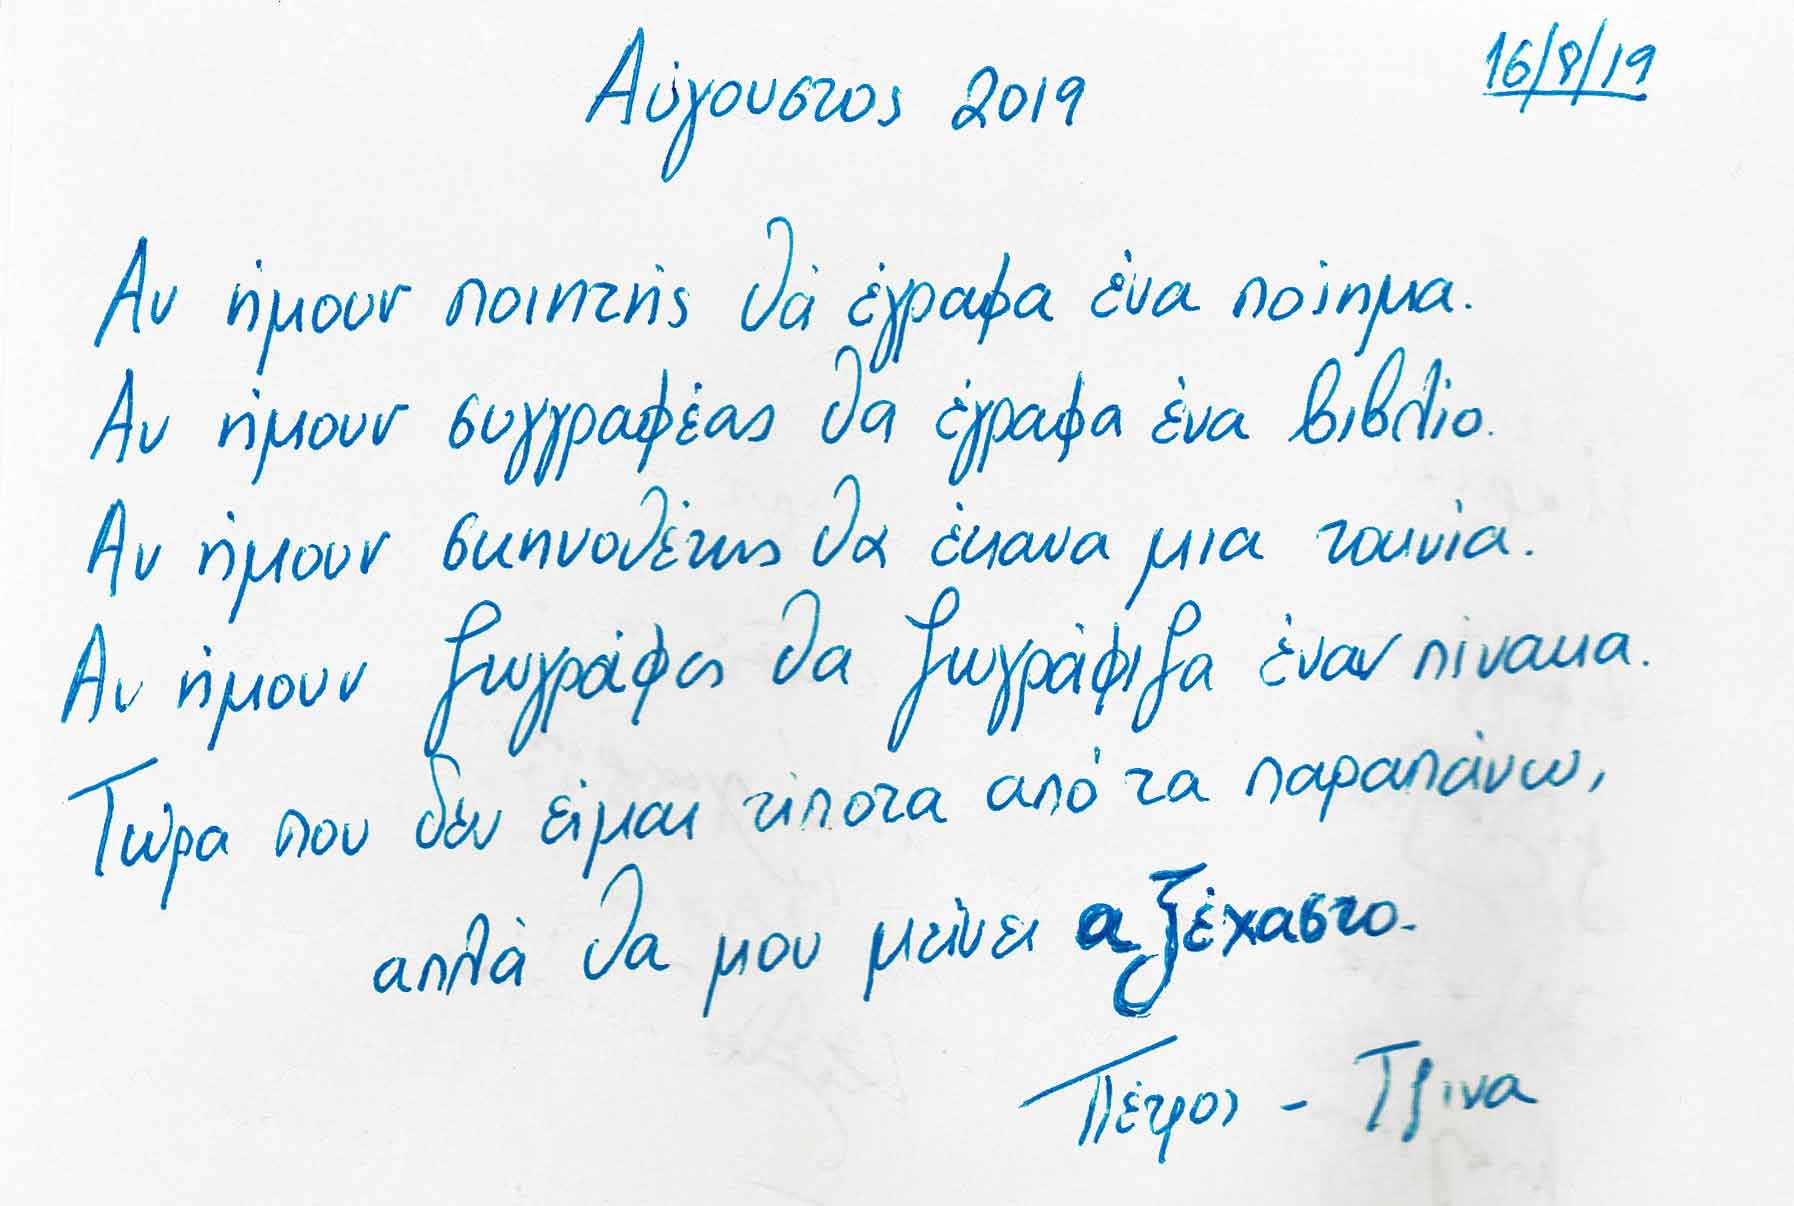 Αύγουστος 2019
16/8/19
Αν ήμουν ποιητής θά έγραφα ένα ποίημα.
Αν ήμουν συγγραφέας θα έγραφα ένα βιβλίο.
Αν ήμουν σκηνοθέτης θα έκανα μια ταινία.
Αν ήμουν ζωγράφος θα ζωγράφιζα έναν πίνακα.
Τώρα που δεν είμαι τίποτα από τα παραπάνω,
απλά θα μου μείνει αξέχαστο.
Πέτρος - Τζίνα